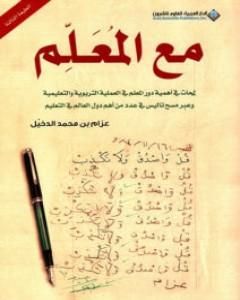 الدار العربية للعلوم ناشرون
Arab Scientific Publishers, Inc.
الطبعة الثالثة
مع المعلم
لمحات في أهمية دور المعلم في العملية التربوية والتعليمية
وعبر مسح لتأليس في عدد من أهم دول العالم في التعليم
عزام بن محمد الدخيل
قُلْ وَاصْدُقْ وَلَا تَكْذِبْ
قُلْ وَاصْدُقْ وَلَا تَكْذِبْ
قُلْ وَاصْدُقْ
قُلْ وَاصْدُقْ
قُلْ وَاصْدُقْ
عزام